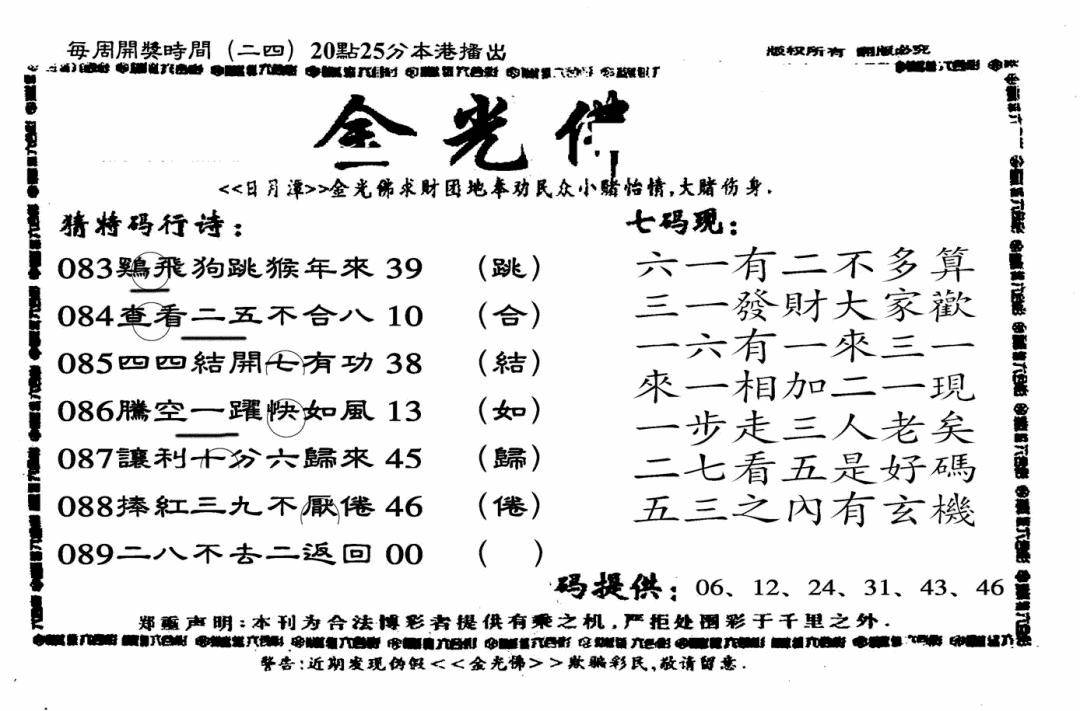 每周開獎時間（二四）20點25分本港播出
版权所有 翻版必究
金光佛
<<日月潭>>金光佛求财团地奉劝民众小赌怡情,大赌伤身.
猜特码行诗：
083鷄飛狗跳猴年來 39 （跳）
084查看二五不合八 10 （合）
085四四結開七有功 38 （結）
086騰空一躍快如風 13 （如）
087讓利十分六歸來 45 （歸）
088捧紅三九不厭倦 46 （倦）
089二八不去二返回 00 （ ）
七码现：
六一有二不多算
三一發財大家歡
一六有一來三一
來一相加二一現
一步走三人老矣
二七看五是好碼
五三之內有玄機
码提供：06、12、24、31、43、46
郑重声明:本刊为合法博彩者提供有乘之机,严拒处图彩于千里之外.
警告:近期发现伪假<<金光佛>>欺骗彩民,敬请留意.